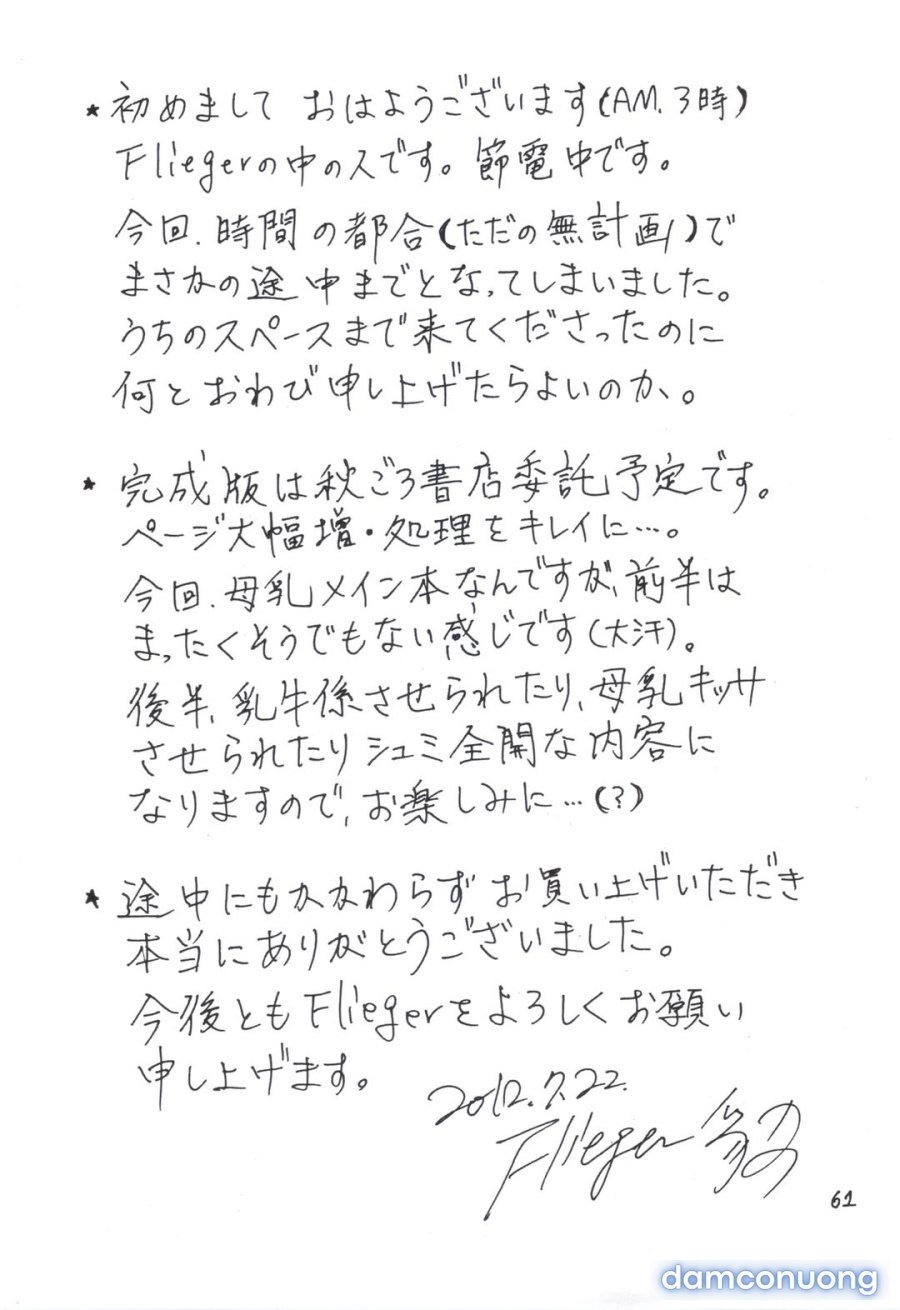 ★初めまして おはようございます(AM.3時)
Fliegerの中の人です。節電中です。
今回、時間の都合(ただの無計画)で
まさかの途中までとなってしまいました。
うちのスペースまで来てくださったのに
何とおわび申し上げたらよいのか、。
★完成版は秋ごろ書店委託予定です。
ページ大幅増・処理をキレイに…。
今回、母乳メイン本なんですが、前半は
まったくそうでもない感じです(大汗)。
後半、乳牛係させられたり、母乳キッサ
させられたりシュミ全開な内容に
なりますので、お楽しみに…(?)
★途中にもかかわらずお買い上げいただき
本当にありがとうございました。
今後ともFliegerをよろしくお願い
申し上げます。
2012.7.22.
Flieger
61
damconuong